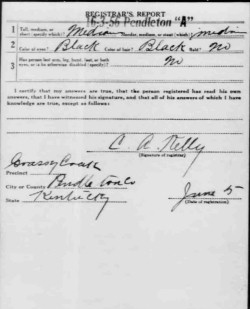 REGISTRAR'S REPORT
16-3-56 Pendleton "A"
1 Tall, medium, or short (specify which)? Medium Slender, medium, or stout (which)? medium
2 Color of eyes? Black Color of hair? Black Bald? No
3 Has person lost arm, leg, hand, foot, or both eyes, or is he otherwise disabled (specify)? No
I certify that my answers are true, that the person registered has read his own
answers, that I have witnessed his signature, and that all of his answers of which I have
knowledge are true, except as follows:
C. A. Kelly
(Signature of registrar)
Grassy Creek
Precinct
City or County Pendleton Co
State Kentucky
June 5
(Date of registration)